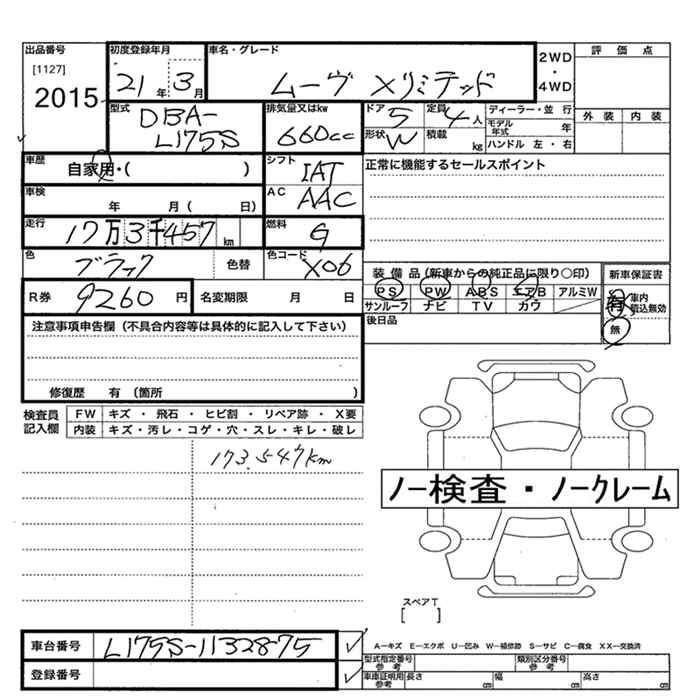 出品番号 初度登録年月 車名・グレード 2WD・4WD 評価点
[1127]
2015 21年 3月 ムーヴ Xリミテッド
型式 DBA-L175S 排気量又はkw 660cc ドア 5 定員 4人 ディーラー・並行 外装 内装
形状 W 積載 kg モデル年式 年 ハンドル 左・右
車歴 自家用・( ) シフト IAT 正常に機能するセールスポイント
車検 年 月( 日) AC AAC
走行 17万3千457km 燃料 G
色 ブラック 色替 色コード X06 装備品(新車からの純正品に限り○印) 新車保証書
PS PW ABS エアB アルミW 有 車内積込無効
R券 9260円 名変期限 月 日 サンルーフ ナビ TV カワ 無
注意事項申告欄(不具合内容等は具体的に記入して下さい) 後日品
修復歴 有(箇所 )
検査員記入欄 FW キズ・飛石・ヒビ割・リペア跡・X要
内装 キズ・汚レ・コゲ・穴・スレ・キレ・破レ
173.547km
ノー検査・ノークレーム
スペアT
[ ]
車台番号 L175S-1132875 A-キズ E-エクボ U-凹み W-補修跡 S-サビ C-腐食 XX-交換済
登録番号 型式指定番号 参考 類別区分番号 参考
車庫証明用 参考 長さ cm 幅 cm 高さ cm